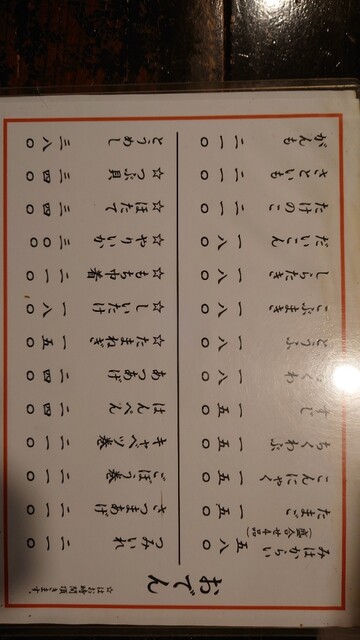 おでん
☆はお時間頂きます。
みはからい 五八〇
(盛合せ4品)
たまご 一五〇
こんにゃく 一五〇
ちくわぶ 一五〇
すじ 一五〇
ちくわ 一八〇
とうふ 一八〇
こぶまき 一八〇
しらたき 一八〇
だいこん 一八〇
たけのこ 二一〇
さといも 二一〇
がんも 二一〇
つみいれ 二一〇
さつまあげ 二一〇
ごぼう巻 二一〇
キャベツ巻 二一〇
はんぺん 二四〇
あつあげ 二四〇
☆たまねぎ 一五〇
☆しいたけ 一八〇
☆もち巾着 二一〇
☆やりいか 三〇〇
☆ほたて 三四〇
☆つぶ貝 三四〇
とうめし 三八〇